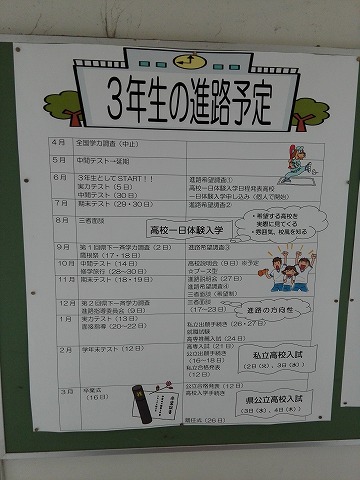 3年生の進路予定
4月 全国学力調査(中止)
5月 中間テスト→延期
6月 3年生としてSTART!! 進路希望調査①
実力テスト(5日) 高校一日体験入学日程発表高校
中間テスト(30日) 一日体験入学申し込み(個人で開始)
7月 期末テスト(29・30日) 進路希望調査②
8月 三者面談
高校一日体験入学
・希望する高校を
実際に見てくる
・雰囲気、校風を知る
9月 第1回県下一斉学力調査(2日) 進路希望調査③
蘭根祭(17・18日)
10月 中間テスト(14日) 高校説明会(9日)※予定
修学旅行(28~30日) ☆ブース型
11月 期末テスト(18・19日) 進路説明会(27日)
進路希望調査④
三者面談(希望制)
12月 第2回県下一斉学力調査 三者面談
進路指導委員会(9日) (17~23日)
進路の方向性
1月 実力テスト(13日) 私立出願手続き(26・27日)
面接指導(20~22日) 就職試験
高専推薦入試(24日)
2月 学年末テスト(12日) 高専入試(21日)
公立出願手続き
(16~18日)
私立合格発表
(12日)
私立高校入試
(2日(火)、3日(水))
3月 卒業式 公立合格発表(12日)
(16日) 高校入学手続き
県公立高校入試
(3日(水)、4日(木))
離任式(26日)